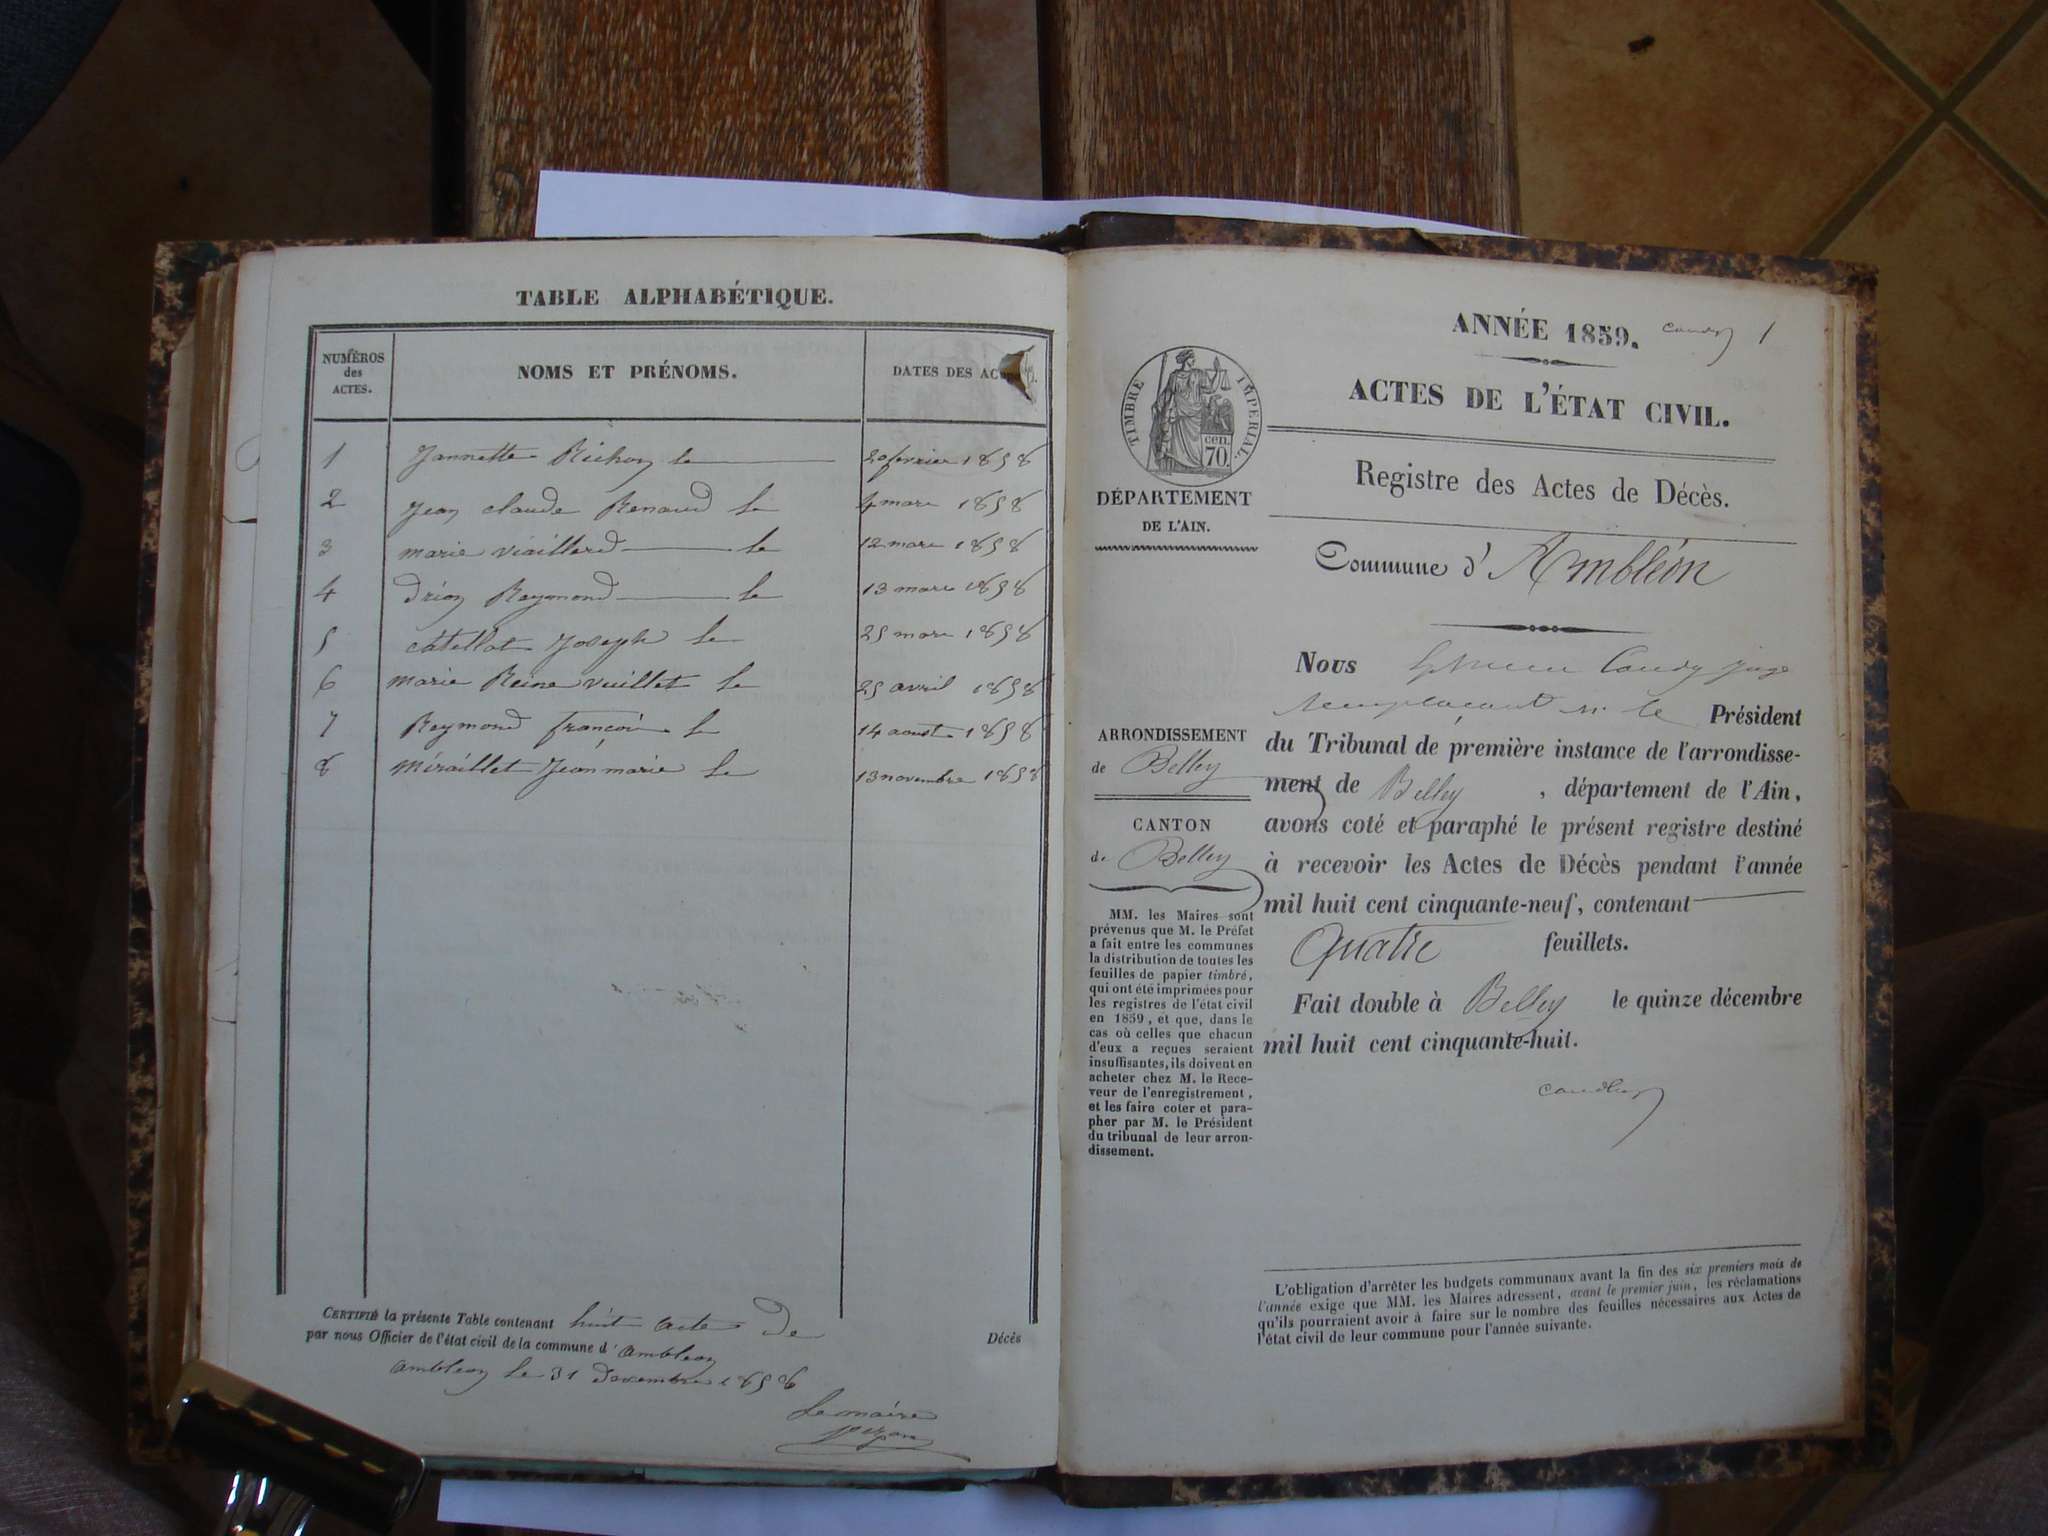 TABLE ALPHABÉTIQUE.
NUMÉROS des ACTES.
NOMS ET PRÉNOMS.
DATES DES
1 Jannette Richon le 20 fevrier 1858
2 Jean claude Renaud le 4 mars 1858
3 marie viaillerd le 12 mars 1858
4 drion Raymond le 13 mars 1858
5 catellat Joseph le 25 mars 1858
6 marie Reine vuillet le 25 avril 1858
7 Raymond francois le 14 aoust 1858
8 miraillet Jean marie le 13 novembre 1858
CERTIFIÉ la présente Table contenant huit actes de Décès
par nous Officier de l'état civil de la commune d'ambleon
ambleon le 31 decembre 1858
Le maire
ANNÉE 1859. 1
ACTES DE L'ÉTAT CIVIL.
Registre des Actes de Décès.
TIMBRE IMPERIAL.
cen.
70.
DÉPARTEMENT
DE L'AIN.
Commune d'Ambléon
ARRONDISSEMENT
de Belley
CANTON
de Belley
MM. les Maires sont
prévenus que M. le Préfet
a fait entre les communes
la distribution de toutes les
feuilles de papier timbré,
qui ont été imprimées pour
les registres de l'état civil
en 1859, et que, dans le
cas où celles que chacun
d'eux a reçues seraient
insuffisantes, ils doivent en
acheter chez M. le Rece-
veur de l'enregistrement,
et les faire coter et para-
pher par M. le Président
du tribunal de leur arron-
dissement.
Nous Caudy juge
remplaçant M. le Président
du Tribunal de première instance de l'arrondisse-
ment de Belley, département de l'Ain,
avons coté et paraphé le présent registre destiné
à recevoir les Actes de Décès pendant l'année
mil huit cent cinquante-neuf, contenant
quatre feuillets.
Fait double à Belley le quinze décembre
mil huit cent cinquante-huit.
L'obligation d'arrêter les budgets communaux avant la fin des six premiers mois de
l'année exige que MM. les Maires adressent, avant le premier juin, les réclamations
qu'ils pourraient avoir à faire sur le nombre des feuilles nécessaires aux Actes de
l'état civil de leur commune pour l'année suivante.